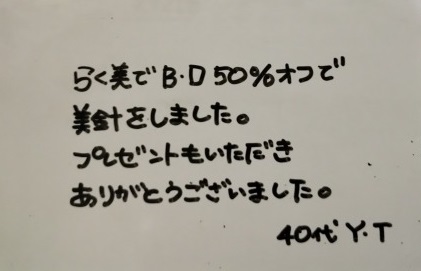 らく美でB・D50%オフで
美針をしました。
プレゼントもいただき
ありがとうございました。
40代 Y・T